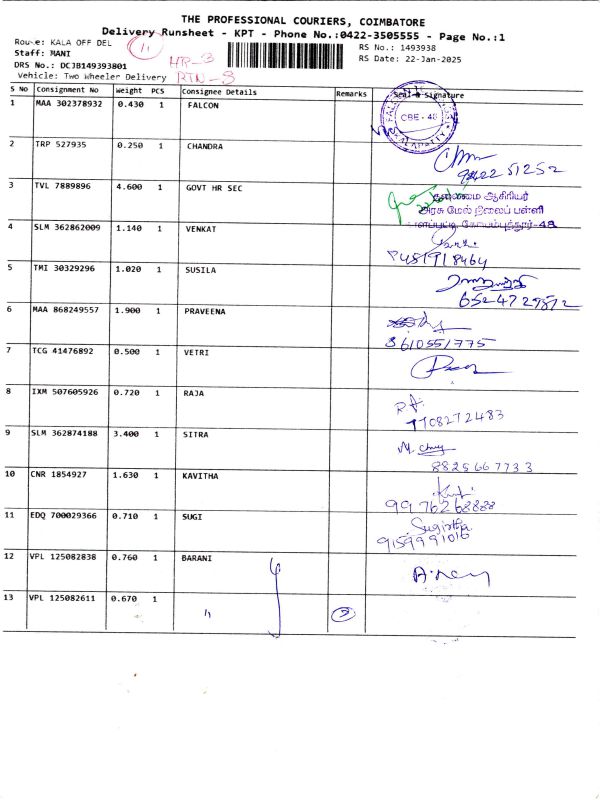 THE PROFESSIONAL COURIERS, COIMBATORE
Delivery Runsheet - KPT - Phone No.:0422-3505555 - Page No.:1
Route: KALA OFF DEL
Staff: MANI
DRS No.: DCJB149393801
Vehicle: Two Wheeler Delivery
11
HR-3
RTN-S
RS No.: 1493938
RS Date: 22-Jan-2025
S No Consignment No Weight PCS Consignee Details Remarks Seal & Signature
1 MAA 302378932 0.430 1 FALCON
CBE - 48
2 TRP 527935 0.250 1 CHANDRA
51252
3 TVL 7889896 4.600 1 GOVT HR SEC
தலைமை ஆசிரியர்
அரசு மேல் நிலைப் பள்ளி
கோயம்புத்தூர்-48
4 SLM 362862009 1.140 1 VENKAT
8451918464
5 TMI 30329296 1.020 1 SUSILA
6 MAA 868249557 1.900 1 PRAVEENA
8610551775
7 TCG 41476892 0.500 1 VETRI
8 IXM 507605926 0.720 1 RAJA
R.A.
7708272483
9 SLM 362874188 3.400 1 SITRA
8825667733
10 CNR 1854927 1.630 1 KAVITHA
9976268888
11 EDQ 700029366 0.710 1 SUGI
9159991016
12 VPL 125082838 0.760 1 BARANI
13 VPL 125082611 0.670 1 "